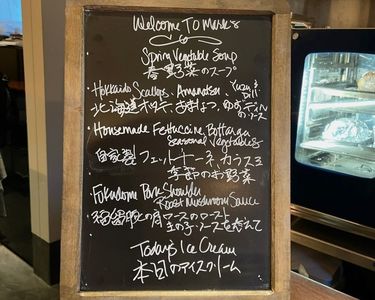 Welcome To Mark's
Spring Vegetable Soup
春野菜のスープ
Hokkaido Scallops, Amanatsu Yuzu & Dill
北海道ホタテ, あまなつ, ゆずディルのソース
Homemade Fettuccine, Bottarga
Seasonal Vegetables
自家製フェットチーネ, カラスミ
季節のお野菜
Fukudome Pork Shoulder
Roast Mushroom Sauce
福留豚の肩ロースのロースト
きの子ソースを添えて
Today's Ice Cream
本日のアイスクリーム